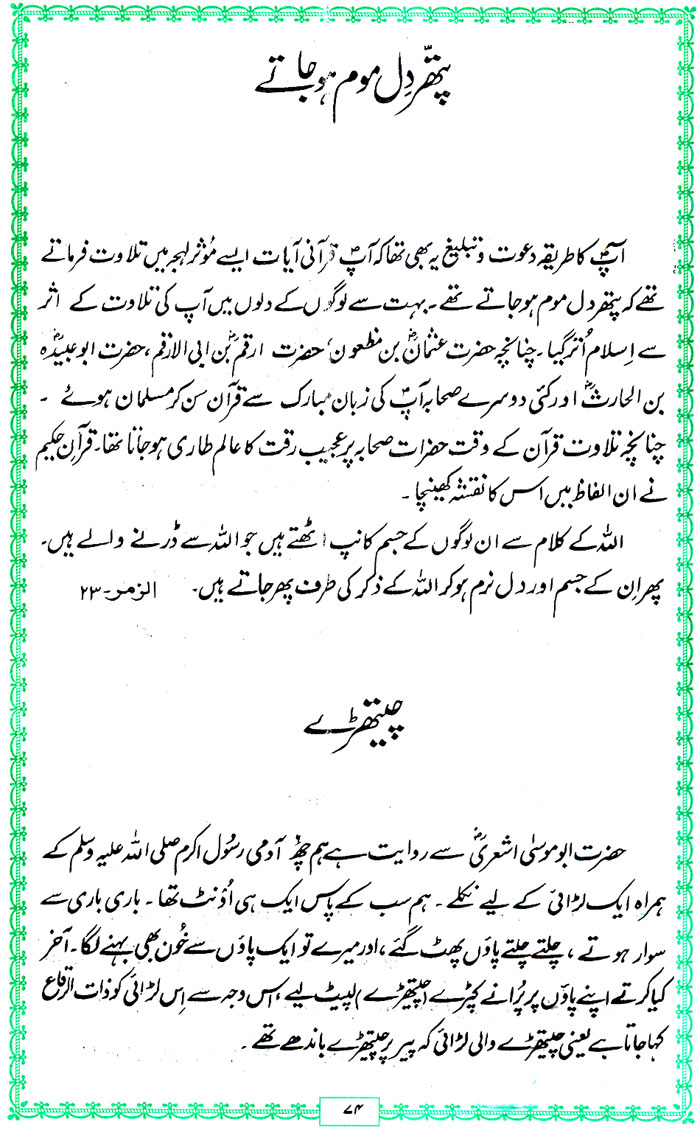 پتھّر دِل موم ہو جاتے
آپؐ کا طریقہ دعوت و تبلیغ یہ بھی تھا کہ آپؐ قرآنی آیات ایسے مُؤثر لہجہ میں تلاوت فرماتے
تھے کہ پتھر دل موم ہو جاتے تھے۔ بہت سے لوگوں کے دلوں میں آپ کی تلاوت کے اثر
سے اِسلام اُتر گیا۔ چنانچہ حضرت عثمانؓ بن مظعون، حضرت ارقمؓ بن ابی الارقم، حضرت ابو عبیدہ
بن الحارثؓ اور کئی دوسرے صحابہ آپؐ کی زبان مبارک سے قرآن سن کر مسلمان ہوئے۔
چنانچہ تلاوت قرآن کے وقت حضرات صحابہ پر عجیب رقت کا عالم طاری ہو جاتا تھا۔ قرآنِ حکیم
نے ان الفاظ میں اس کا نقشہ کھینچا۔
اللہ کے کلام سے ان لوگوں کے جسم کانپ اٹھتے ہیں جو اللہ سے ڈرنے والے ہیں۔
پھر اِن کے جسم اور دل نرم ہو کر اللہ کے ذکر کی طرف پھر جاتے ہیں۔ الزمر-۲۳
چیتھڑے
حضرت ابو موسیٰ اشعریؓ سے روایت ہے ہم چھ آدمی رسُول اکرم صلی اللہ علیہ وسلم کے
ہمراہ ایک لڑائی کے لیے نکلے۔ ہم سب کے پاس ایک ہی اُونٹ تھا۔ باری باری سے
سوار ہوتے، چلتے چلتے پاؤں پھٹ گئے، اور میرے تو ایک پاؤں سے خُون بھی بہنے لگا۔ آخر
کیا کرتے اپنے پاؤں پر پُرانے کپڑے (چیتھڑے) لپیٹ لیے، اس وجہ سے اِس لڑائی کو ذات الرقاع
کہا جاتا ہے یعنی چیتھڑے والی لڑائی کہ پیر پر چیتھڑے باندھے تھے۔
۷۴